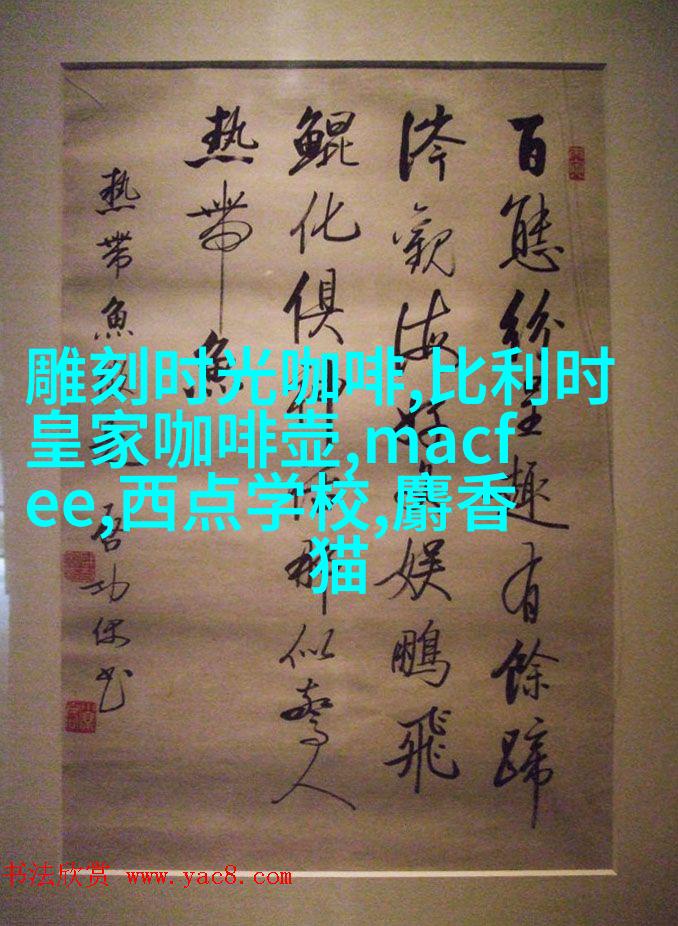 百態紛呈趣有餘蹄
涔觀海好娱鵬飛
鯤化俱似驚人
熱帶魚
熱帶魚启功俚书
雕刻时光咖啡,比利时
皇家咖啡壶,macf
ee,西点学校,麝香
猫
书法欣赏 www.yac8.com